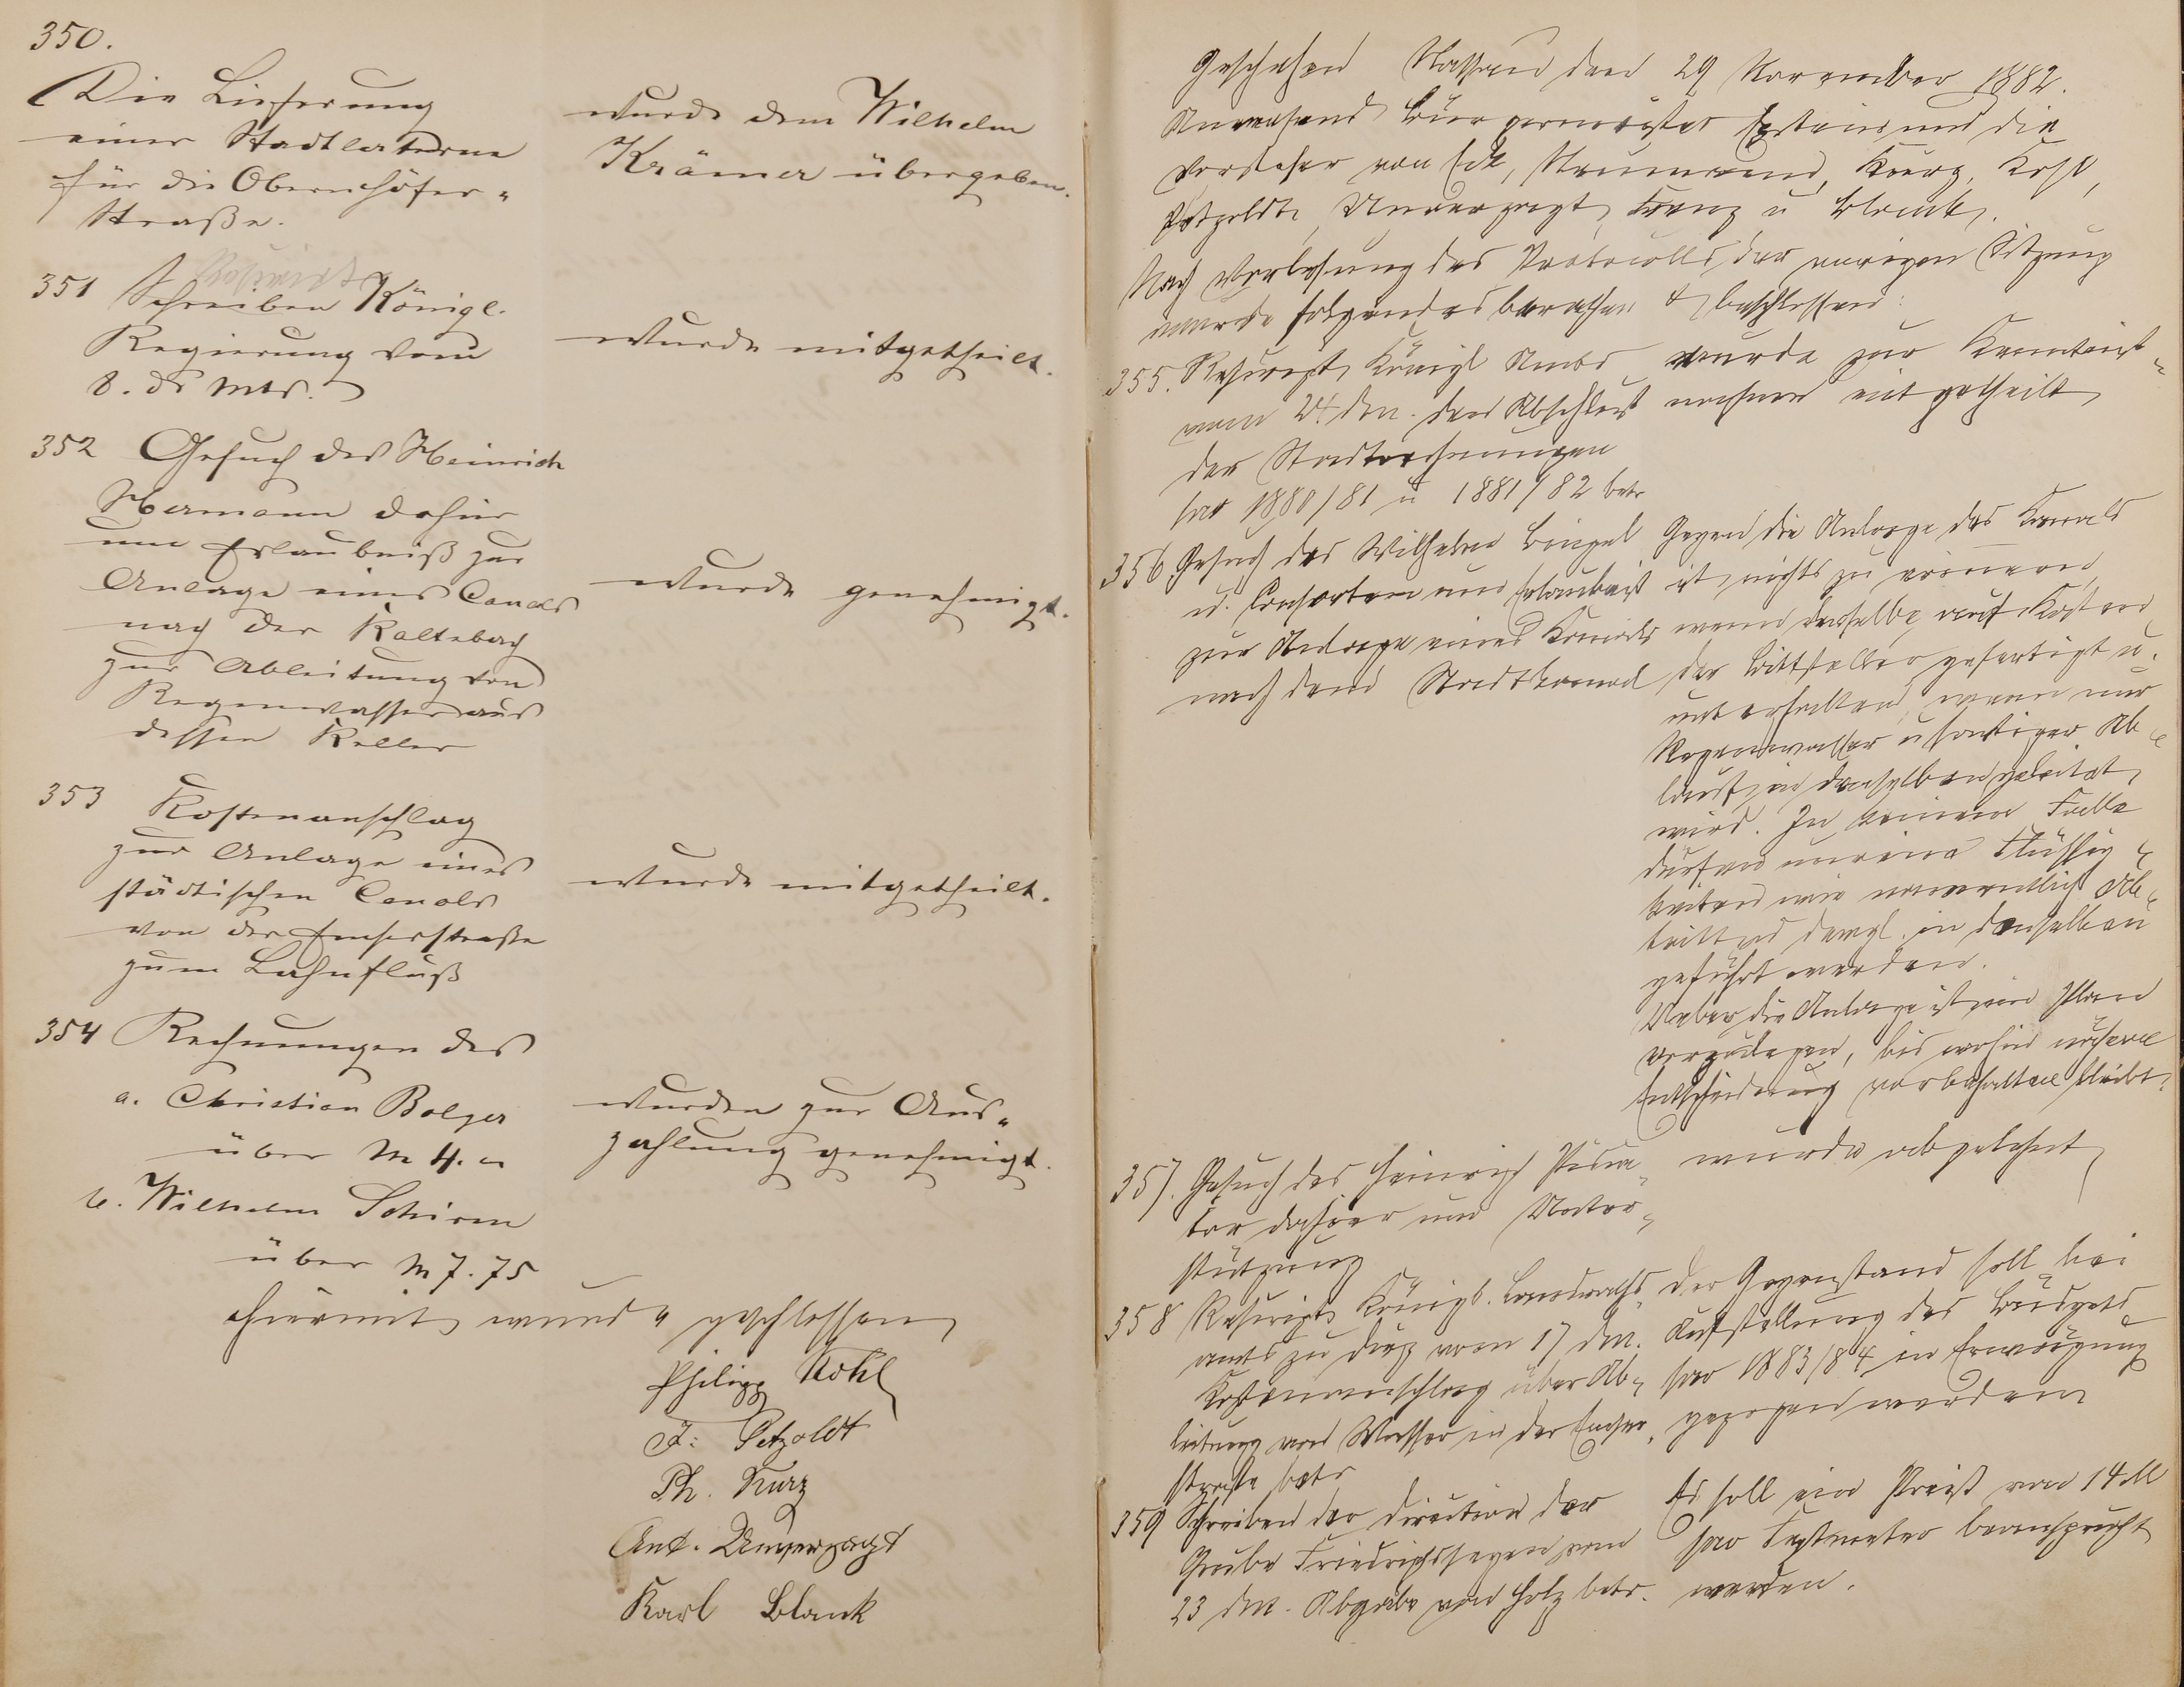 350.
Die Lieferung
einer Stadtlaterne
für die Obernhöfer-
Straße.
wurde dem Wilhelm
Krämer übergeben.
351 Schreiben Königl.
Regierung vom
8. ds Mts.
wurde mitgetheilt.
352 Gesuch des Heinrich
Hermann dahier
um Erlaubniß zur
Anlage eines Canals
nach der Kaltebach
zur Ableitung von
Regenwasser aus
dessen Keller
wurde genehmigt.
353 Kostenanschlag
zur Anlage eines
städtischen Canals
von der Emserstraße
zum Lahnfluß
wurde mitgetheilt.
354 Rechnungen des
a. Christian Balzer
über M 4. u
b. Wilhelm Schirm
über M 7.75
wurden zur Aus-
zahlung genehmigt.
Hiermit wurde geschlossen
Philipp Kohl
F: Petzoldt
Ph. Kurz
Ant. Unverzagt
Karl Blank
Geschehen Nassau den 29 November 1882.
Anwesend Bürgermeister und die
Vorsteher von Eck, Kurz, Kohl,
Petzoldt, Unverzagt, u Blank.
Nach Verlesung des Protocolls der vorigen Sitzung
wurde folgendes berathen & beschlossen:
355. Rescript Königl Amts
vom 24 dM. den Abschluß
der Stadtrechnungen
pro 1880/81 u 1881/82 betr
wurde zur Kenntniß-
nahme mitgetheilt
356 Gesuch des Wilhelm Bingel
u. Consorten um Erlaubniß
zur Anlage eines Kanals
nach dem Stadtkanal
Gegen die Anlage des Kanals
ist nichts zu erinnern,
wenn derselbe auf Kosten
der Bittsteller gefertigt u.
unterhalten, wenn nur
Regenwasser u sonstiger Ab-
lauf in denselben geleitet
wird. In keinem Falle
dürfen unreine Flüssig-
keiten wie namentlich Ab-
tritt u dergl. in denselben
geführt werden.
Ueber die Anlage ist ein Plan
vorzulegen, bis wohin nähere
Entscheidung vorbehalten bleibt.
357. Gesuch des Heinrich
dahier um Unter-
stützung
wurde abgelehnt
358 Rescript Königl. Landraths-
amts zu Diez vom 17 dM.
Kostenanschlag über Ab-
leitung von Wasser in der Emser-
straße betr
Der Gegenstand soll bei
Aufstellung des Budgets
pro 1883/84 in Erwägung
gezogen werden
359 Schreiben der Direction der
Grube Friedrichssegen vom
23 dM. Abgabe von Holz betr.
Es soll ein Preis von 14 M
pro Festmeter beansprucht
werden.